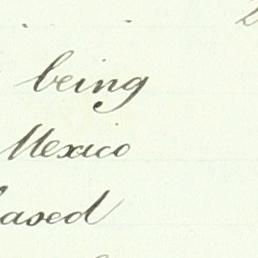 being
Mexico
ased